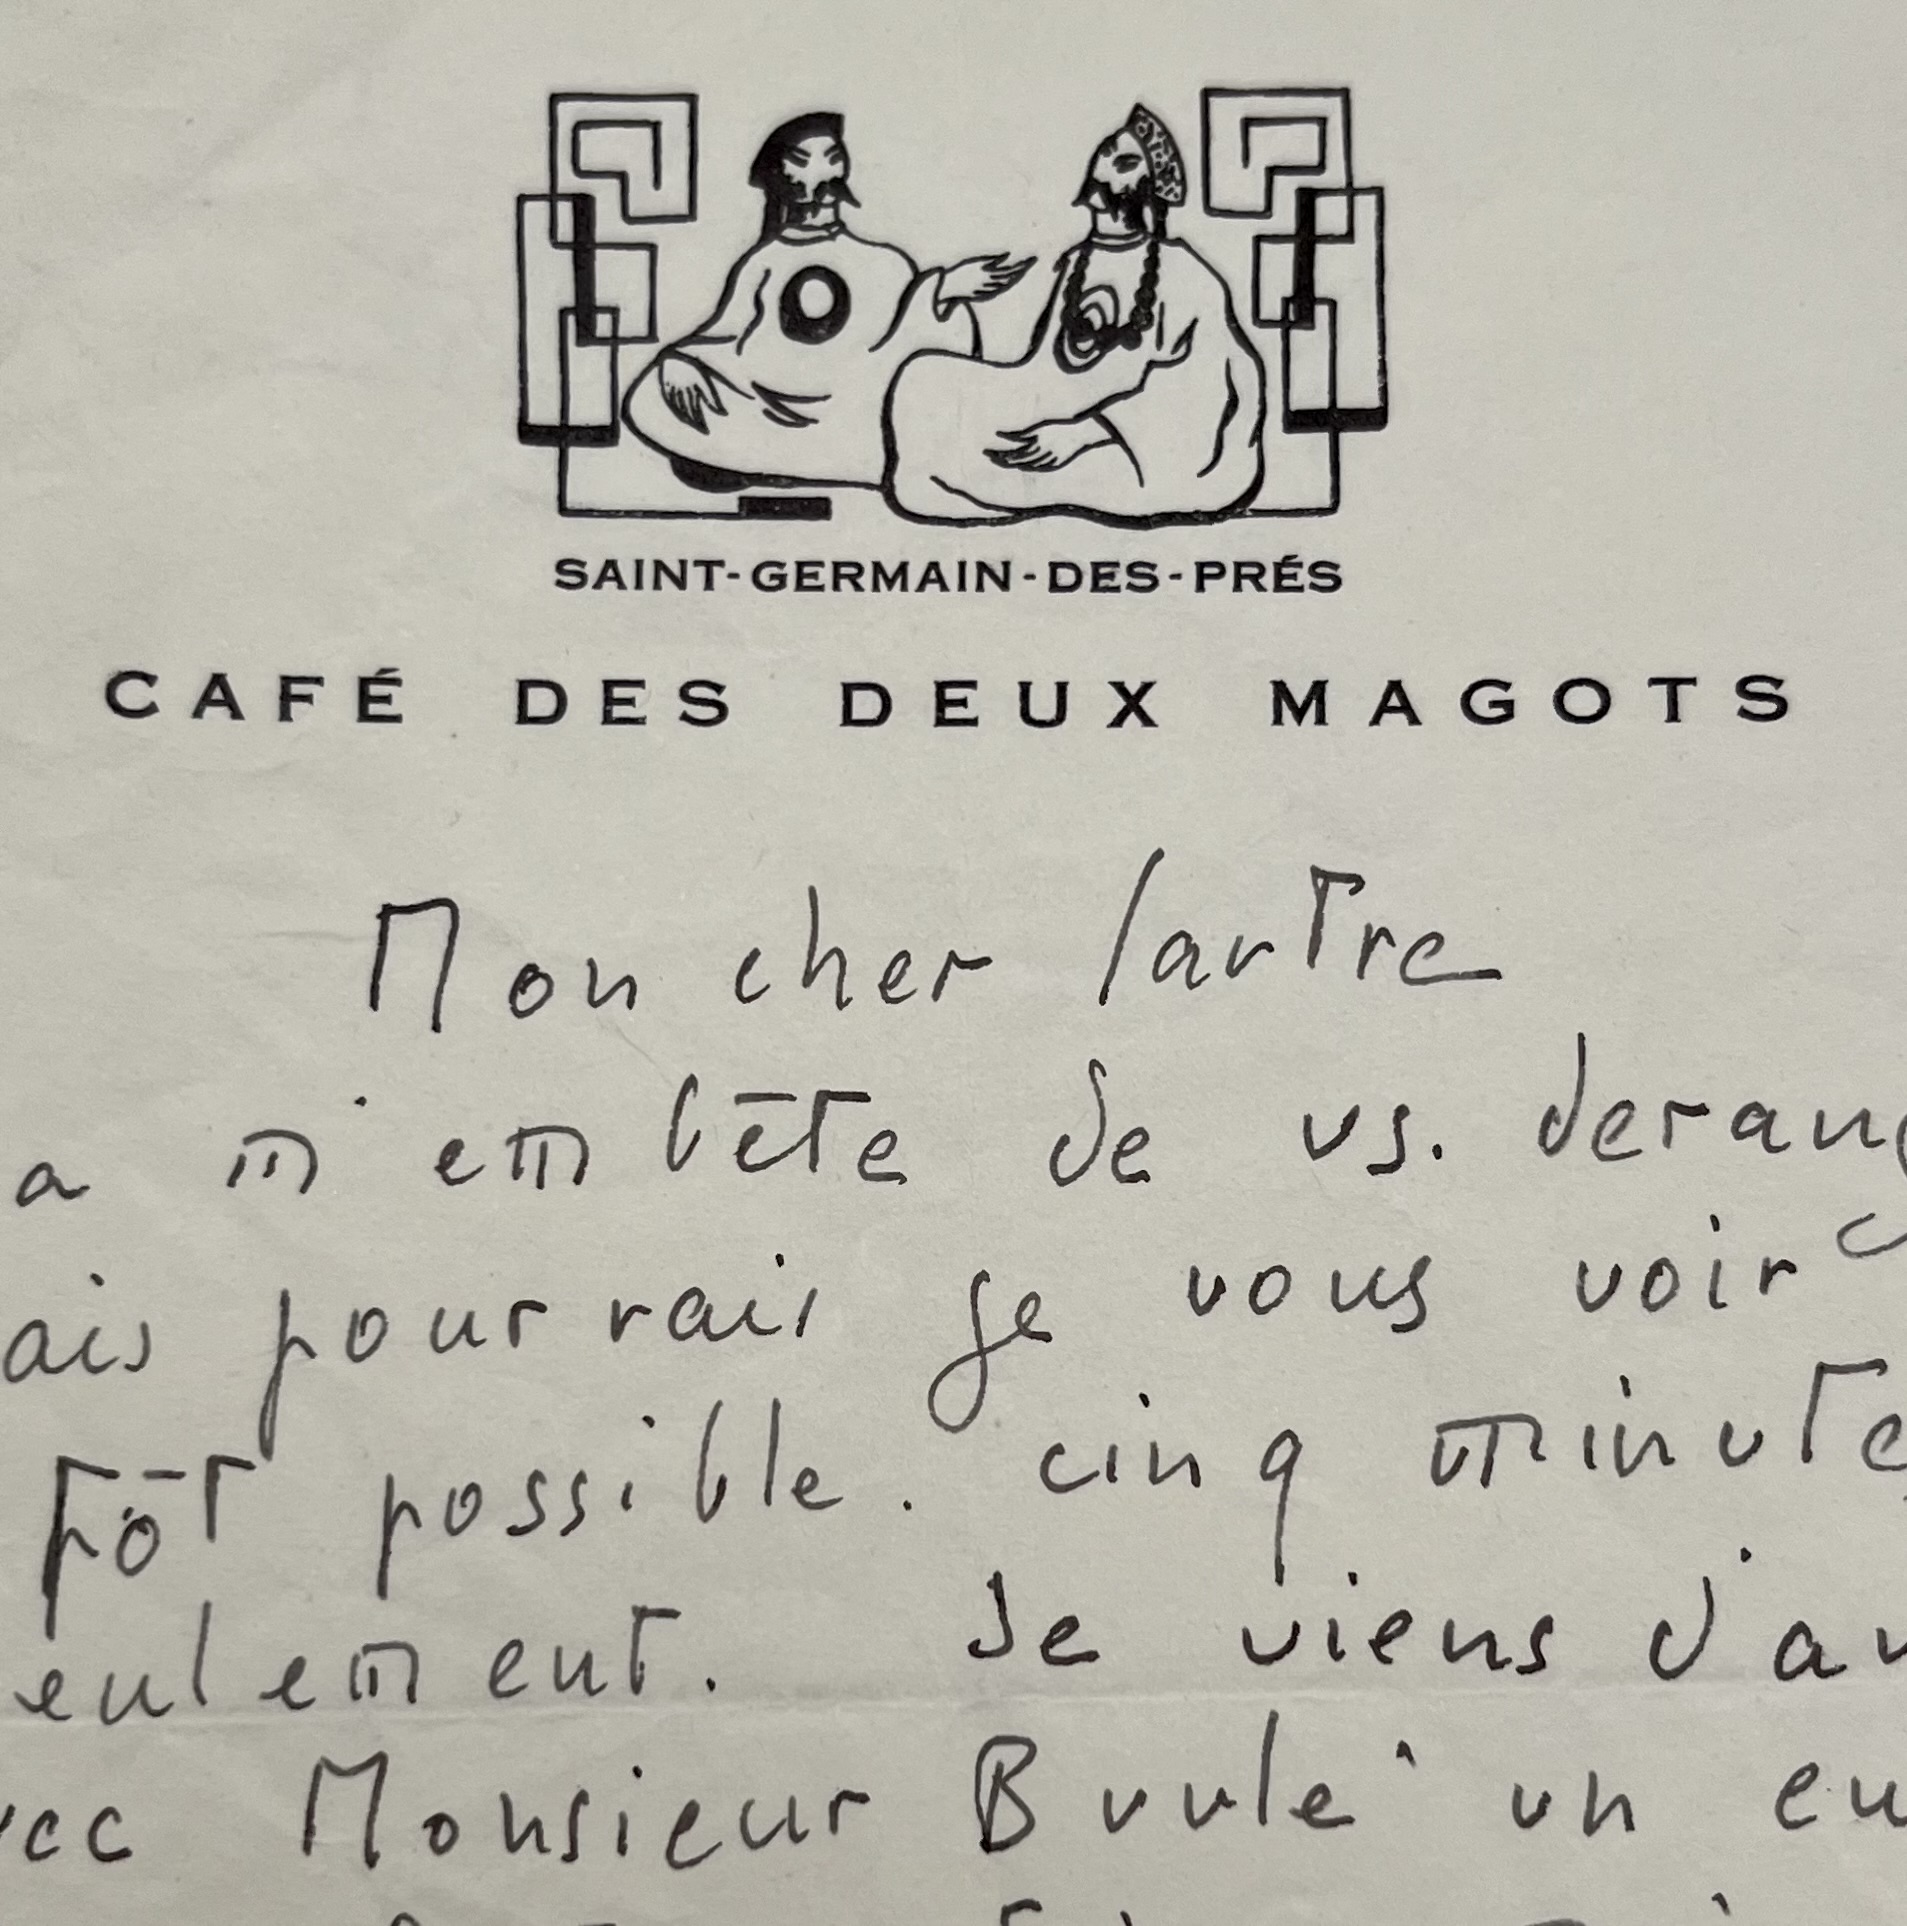 SAINT-GERMAIN-DES-PRÉS
CAFÉ DES DEUX MAGOTS
Mon cher Sartre
a m'embête de vs. derang
ais pourrais je vous voir
tôt possible. cinq minute
eulement. Je viens d'av
vec Monsieur un en